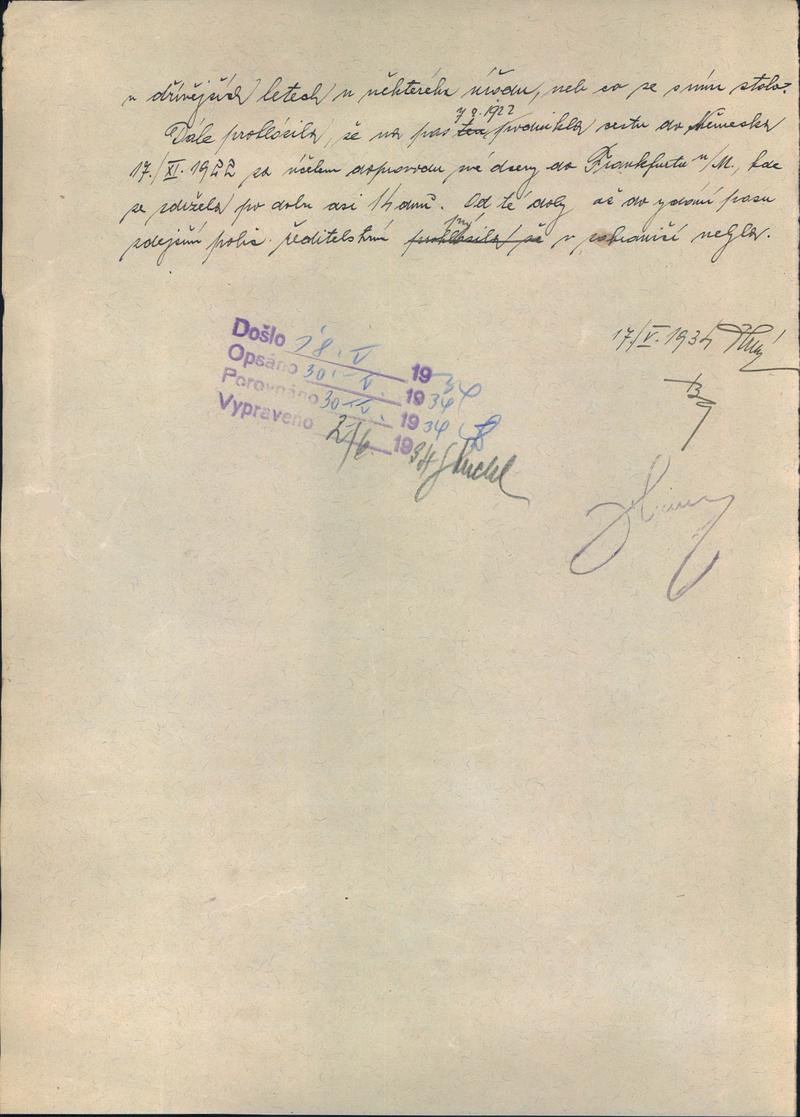 v dřívějších letech u některého úřadu, neb co se s ním stalo.
z r. 1922
Dále prohlásila, že na pas podnikla cestu do Německa
17./XI. 1922 za účelem doprovodu své dcery do Frankfurtu n/M., kde
se zdržela po dobu asi 14 dnů. Od té doby až do vydání pasu
zdejším polic. ředitelstvím prohlásila, že v zahraničí nebyla.
17/V. 1934
Došlo 18. V. 1934
Opsáno 30. V. 1934
Porovnáno 30. V. 1934
Vypraveno 2/6 1934